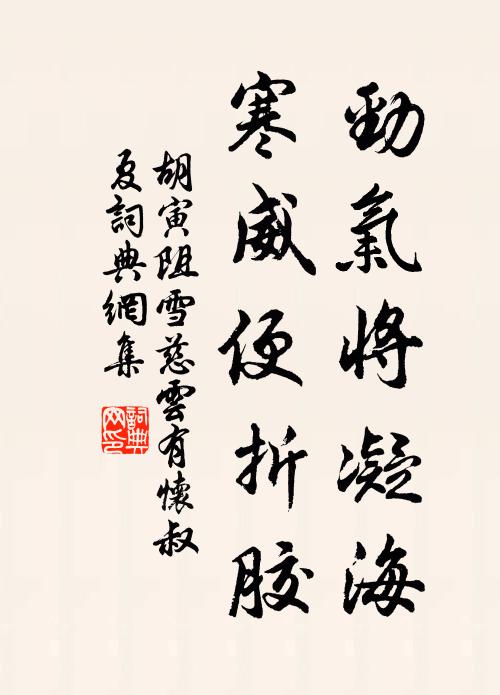 勁氣將凝海
寒威便折膠
胡寅阻雪慈雲有懷叔
夏詞典網集
詞典
网印